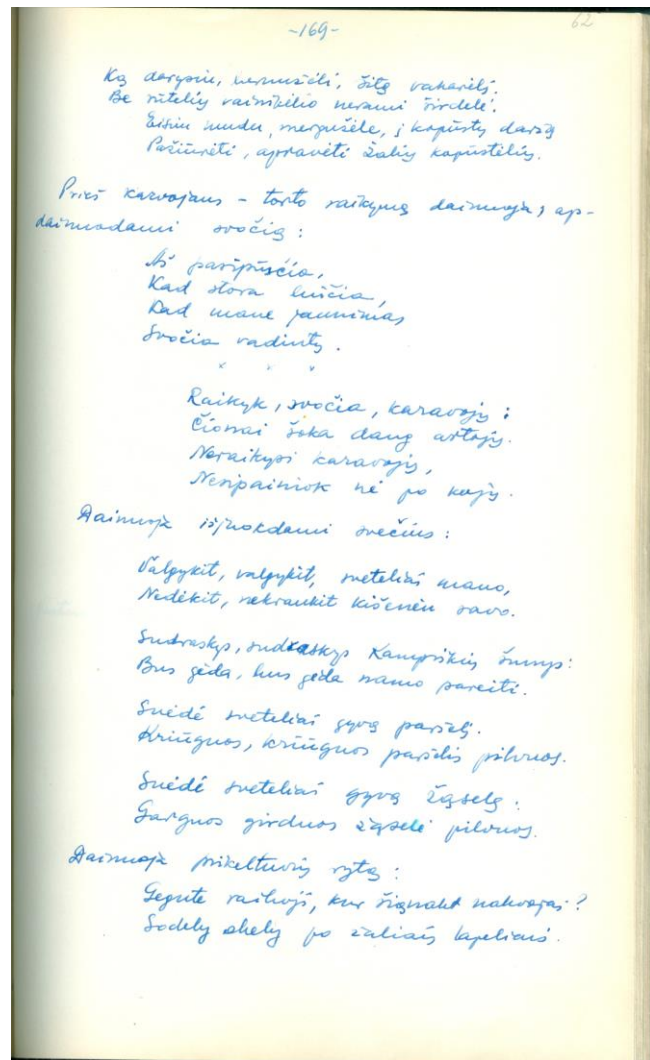 -169-
62
Ką darysiu, bernužėli, šitą vakarėlį.
Be rūtelių vainikėlio nerami širdelė.
Eisiu mudu, mergužėle, į kopūstų daržą
Pažiūrėti, apravėti žalių kopūstėlių.
Prieš karvojaus - torto raikymą dainuoja, ap-
dainuodami svočią:
Aš pasipūsčia,
Kad stora būčia,
Kad mane jaunimas
Svočia vadintų.
x x x
Raikyk, svočia, karavojų:
Čionai šoka daug artojų.
Neraikysi karavojų,
Nesipainiok nė po kojų.
Dainuoja išjuokdami svečius:
Valgykit, valgykit, sveteliai mano,
Nedėkit, nekraukit kišenėn savo.
Sudraskys, sudraskys Kampiškių šunys:
Bus gėda, bus gėda namo pareiti.
Suėdė sveteliai gyvą paršelį.
Kriūgnos, kriūgnos paršelis pilvuos.
Suėdė sveteliai gyvą žąselę.
Gargnos girduos žąselė pilvuos.
Dainuoja prikeltuvių rytą:
Gegute raiboji, kur šiąnakt nakvojai?
Sodely obely po žaliais lapeliais.